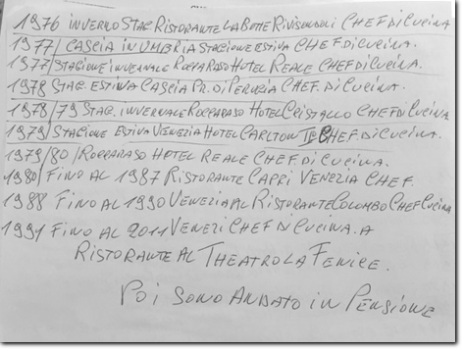 1976 INVERNO STAG. RISTORANTE LA BOTTE RIVISONDOLI CHEF DI CUCINA
1977/ CASCIA IN UMBRIA STAGIONE ESTIVA CHEF DI CUCINA.
1977/ STAGIONE INVERNALE ROCCARASO HOTEL REALE CHEF DI CUCINA.
1978 STAG. ESTIVA CASCIA PR. DI PERUGIA CHEF. DI CUCINA.
1978/79 STAG. INVERNALE ROCCARASO HOTEL CRISTALLO CHEF DI CUCINA
1979/ STAGIONE ESTIVA VENEZIA HOTEL CARLTON CHEF DI CUCINA.
1979/80/ ROCCARASO HOTEL REALE CHEF DI CUCINA.
1980/ FINO AL 1987 RISTORANTE CAPRI VENEZIA CHEF.
1988 FINO AL 1990 VENEZIA AL RISTORANTE COLOMBO CHEF CUCINA
1991 FINO AL 2011 VENEZI CHEF DI CUCINA. A
RISTORANTE AL THEATRO LA FENICE.
POI SONO ANDATO IN PENSIONE